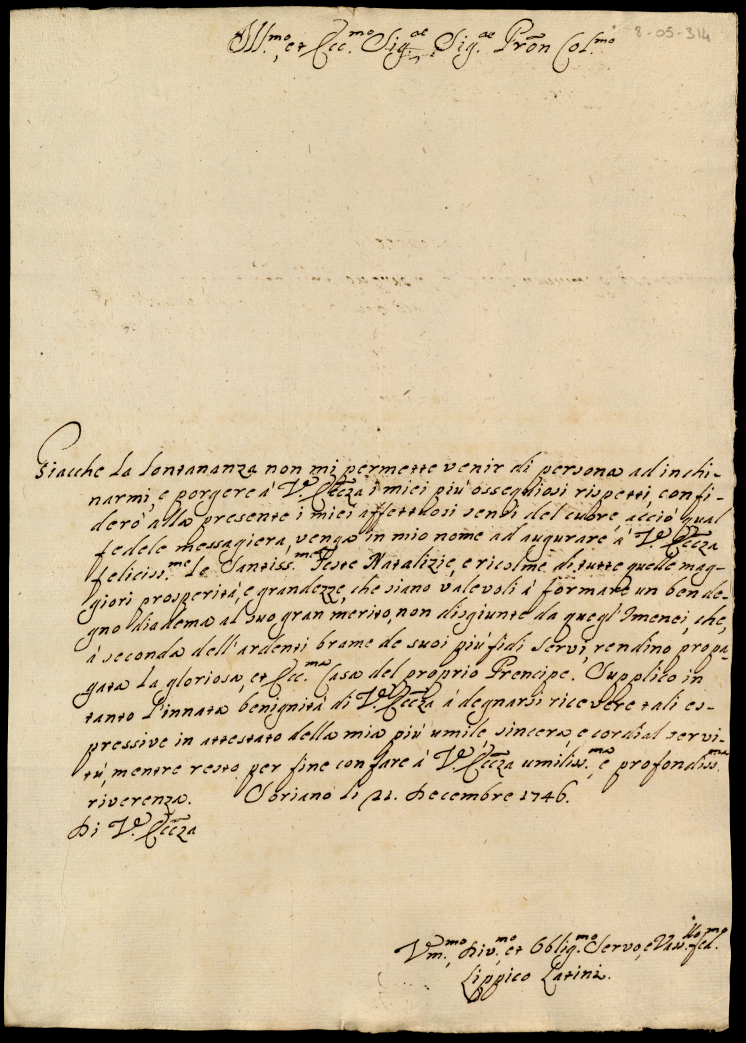 Ill.mo, et Ecc.mo Sig.re Sig.re Pron Col.mo
8-05-314
Giacche La lontananza non mi permette venir di persona ad inchi-
narmi, e porgere à V.E Eccza i miei più ossequiosi rispetti, confi-
derò alla presente i miei affettuosi sensi del cuore, acciò qual
fedele messagiera, venga in mio nome ad augurare à V.E Eccza
feliciss.me Le Santiss.me Feste Natalizie, e ricolme di tutte quelle mag-
giori prosperità, e grandezze, che siano valevoli à formare un ben de-
gno diadema al suo gran merito, non disgiunte da quegl'Imenei, che,
à seconda dell'ardenti brame de suoi più fidi servi, rendino propa-
gata La gloriosa, et Ecc.ma Casa del proprio Prencipe. Supplico in
tanto l'innata benignità di V.E Eccza à degnarsi ricevere tali es-
pressive in attestato della mia più umile, sincera, e cordial servi-
tù, mentre resto per fine con fare à V.E Eccza umiliss.ma, e profondiss.ma
riverenza. Soriano li 21. Decembre 1746.
Di V.E Eccza
Um.mo, Div.mo, et Oblig.mo Servo, e Vass.llo fed.mo
Lippico Latini.